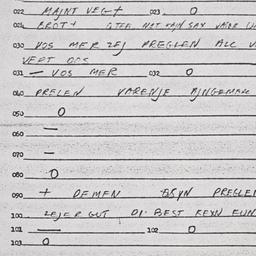 022 MAJNT VEGT 023 O
024 BROT+ GTEE NET KAJN SAX
030 VOS MER ZEJ PREGLEN ALC V
VEPT DOS
031 — VOS MER 032 O
040 PRELEN VARENJE AJNGEMAKC
050 O
060 —
070 —
080 O
090 + DEMEN BRYN PREGLE
100 ZEJER GUT DI BEST KEYN EUN
101 — 102 O
103 O